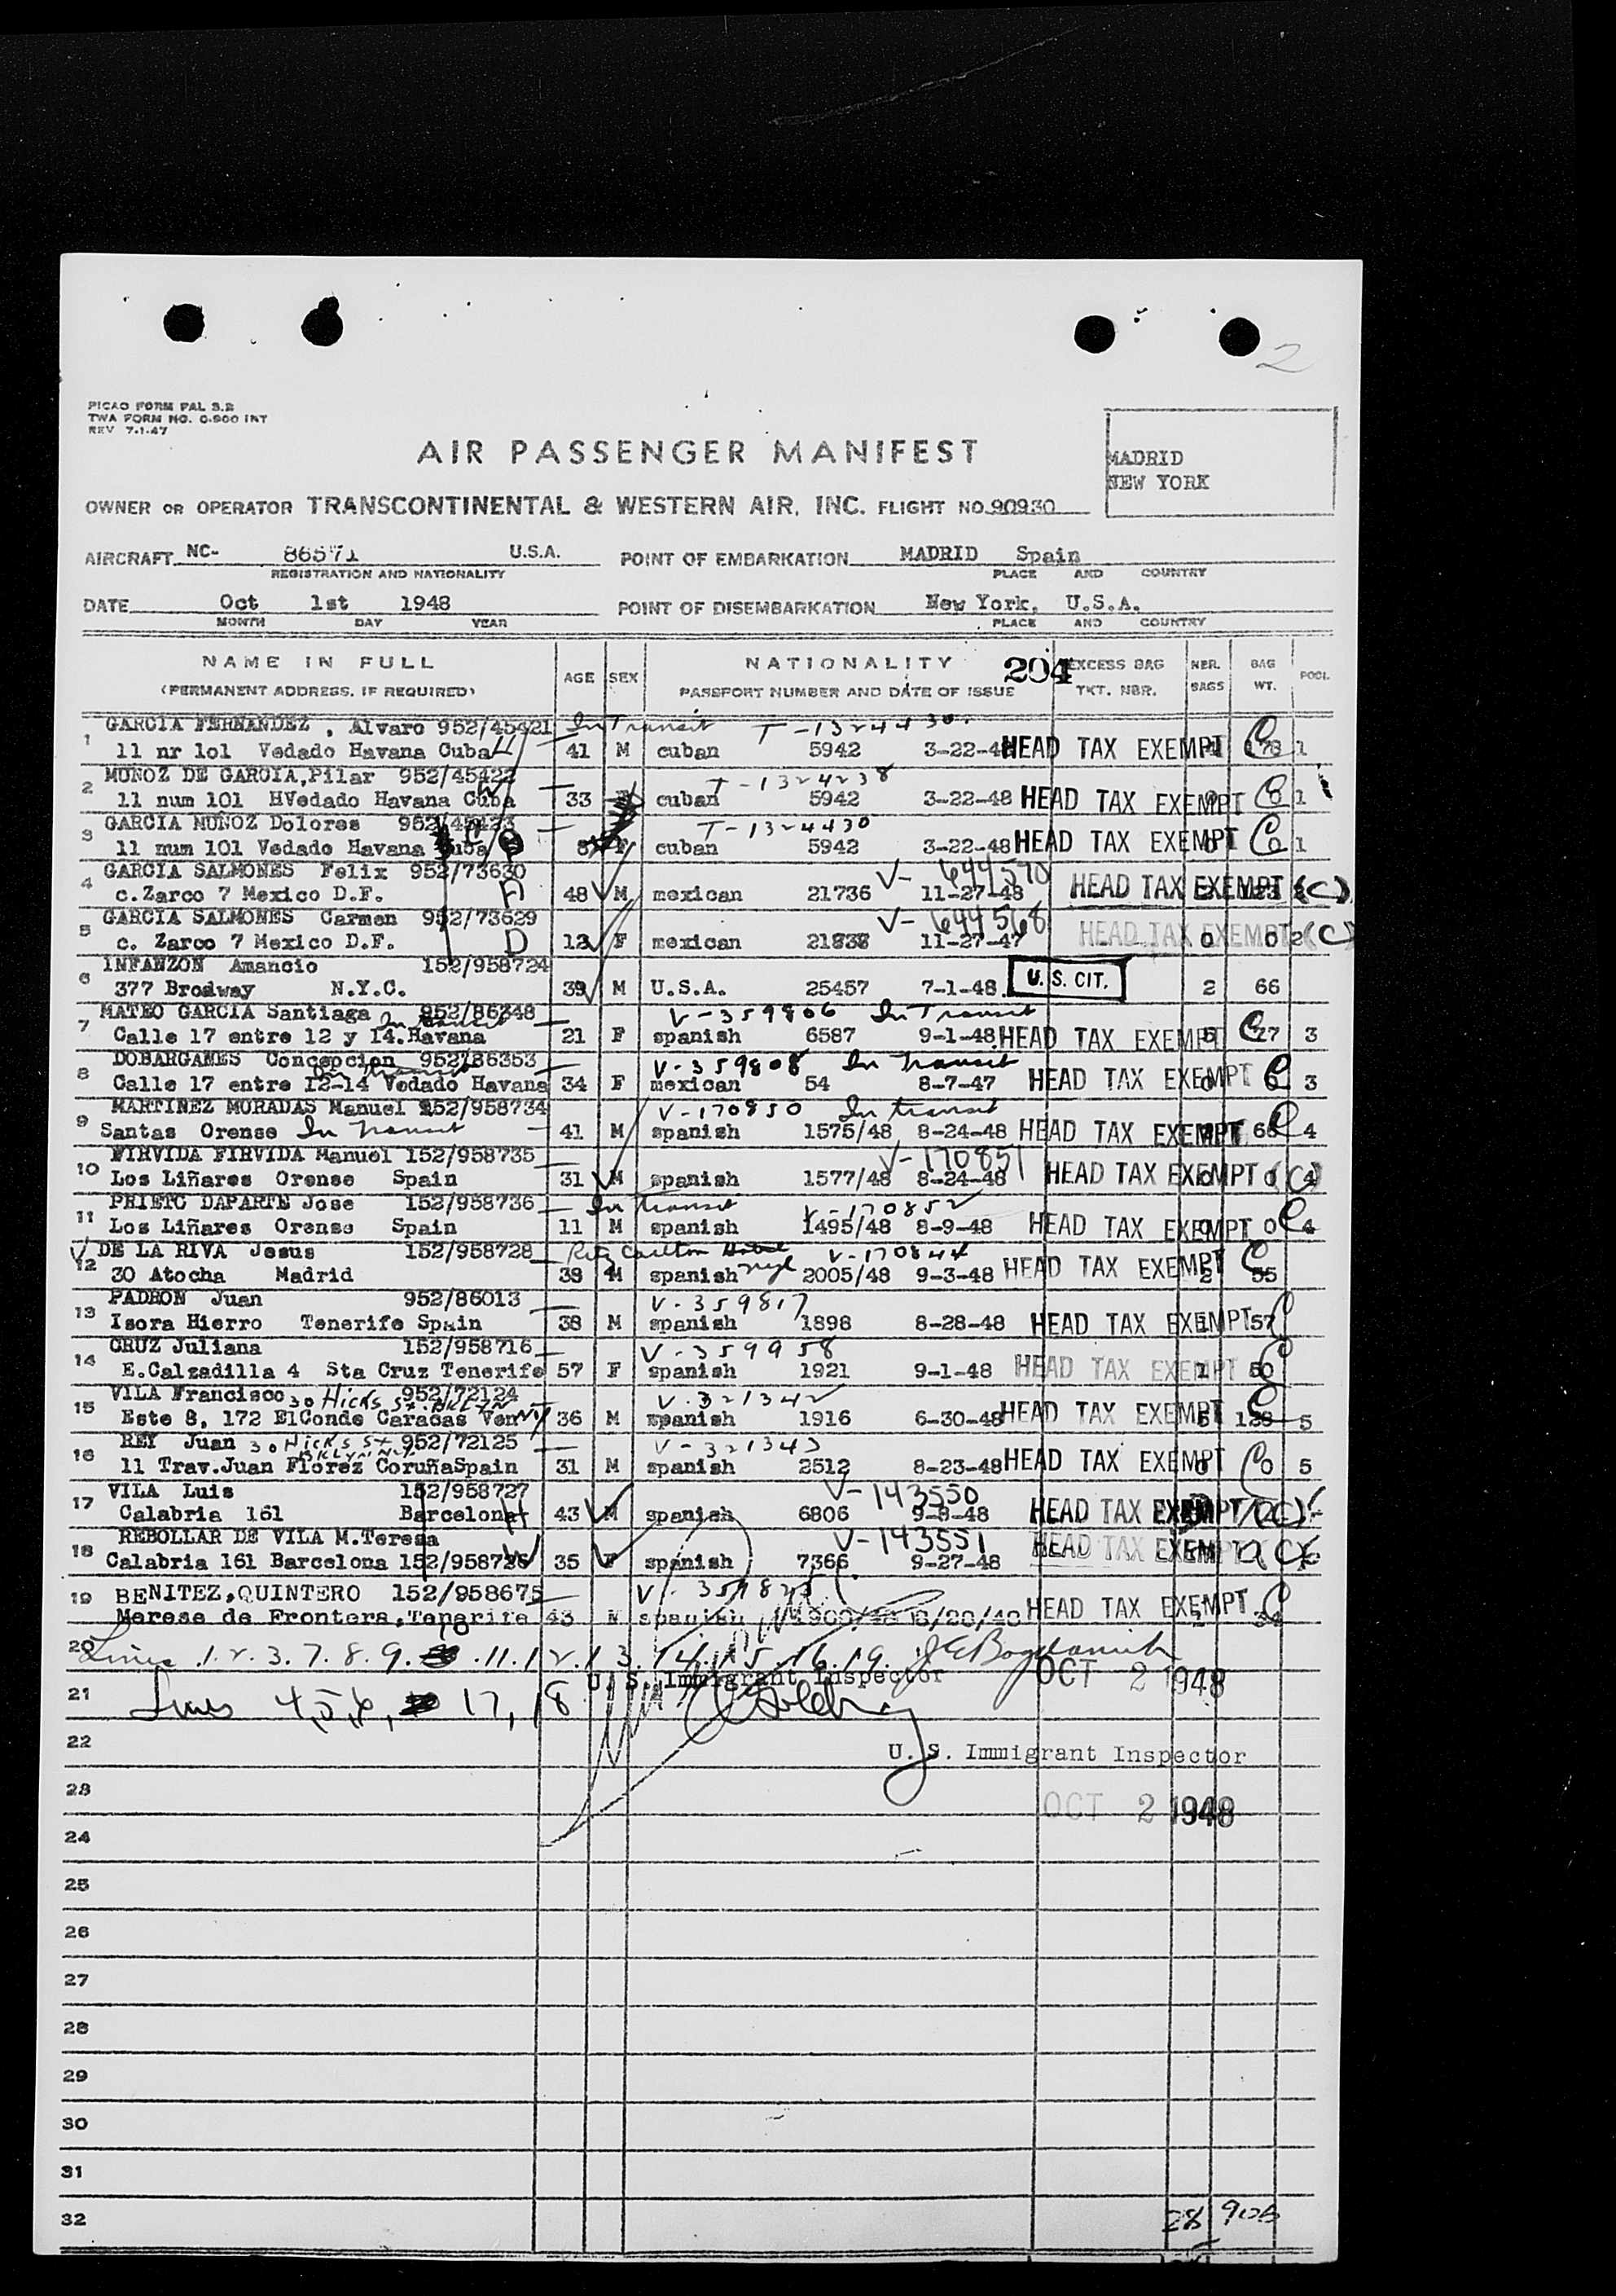 2
PICAO FORM PAL S.2
TWA FORM NO. O-900 INT
REV 7-1-47
AIR PASSENGER MANIFEST
MADRID
NEW YORK
OWNER OR OPERATOR TRANSCONTINENTAL & WESTERN AIR, INC. FLIGHT NO. 90930
AIRCRAFT NC- 86571 U.S.A. POINT OF EMBARKATION MADRID Spain
REGISTRATION AND NATIONALITY PLACE AND COUNTRY
DATE Oct 1st 1948 POINT OF DISEMBARKATION New York, U.S.A.
MONTH DAY YEAR PLACE AND COUNTRY
NAME IN FULL AGE SEX NATIONALITY 204 EXCESS BAG NBR. BAG POOL
(PERMANENT ADDRESS, IF REQUIRED) PASSPORT NUMBER AND DATE OF ISSUE TKT. NBR. BAGS WT.
GARCIA FERNANDEZ , Alvaro 952/45421 In Transit
1 11 nr 101 Vedado Havana Cuba H 41 M cuban 5942 3-22-48 HEAD TAX EXEMPT C 1
MUNOZ DE GARCIA,Pilar 952/45422 T-1324238
2 11 num 101 HVedado Havana Cuba W 33 cuban 5942 3-22-48 HEAD TAX EXEMPT C 1
GARCIA MUNOZ Dolores 952/45423 T-1324430
3 11 num 101 Vedado Havana Cuba F cuban 5942 3-22-48 HEAD TAX EXEMPT C 1
GARCIA SALMONES Felix 952/73630 V-644570
4 c.Zarco 7 Mexico D.F. 48 M mexican 21736 11-27-48 HEAD TAX EXEMPT (C)
GARCIA SALMONES Carmen 952/73629 V-644568
5 c. Zarco 7 Mexico D.F. D 12 F mexican 21838 11-27-47 HEAD TAX EXEMPT 0 0 2 (C)
INFANZON Amancio 152/958724
6 377 Brodway N.Y.C. 39 M U.S.A. 25457 7-1-48 U. S. CIT. 2 66
MATEO GARCIA Santiaga 952/86348 In transit V-359806 In Transit
7 Calle 17 entre 12 y 14.Havana 21 F spanish 6587 9-1-48 HEAD TAX EXEMPT C 3
DOBARGANES Concepcion 952/86353 In transit V-359808 In Transit
8 Calle 17 entre 12-14 Vedado Havana 34 F mexican 54 8-7-47 HEAD TAX EXEMPT C 3
MARTINEZ MORADAS Manuel 152/958734 V-170850 In transit
9 Santas Orense In Transit 41 M spanish 1575/48 8-24-48 HEAD TAX EXEMPT C 4
FIRVIDA FIRVIDA Manuel 152/958735 V-170851
10 Los Liñares Orense Spain 31 M spanish 1577/48 8-24-48 HEAD TAX EXEMPT 0 (C) 4
PRIETO DAPARTE Jose 152/958736 In transit V-170852
11 Los Liñares Orense Spain 11 M spanish 1495/48 8-9-48 HEAD TAX EXEMPT 0 C 4
DE LA RIVA Jesus 152/958728 Ritz Carlton Hotel nyc V-170844
12 30 Atocha Madrid 39 M spanish 2005/48 9-3-48 HEAD TAX EXEMPT C 2 55
PADRON Juan 952/86013 V-359817
13 Isora Hierro Tenerife Spain 38 M spanish 1898 8-28-48 HEAD TAX EXEMPT 57 C
CRUZ Juliana 152/958716 V-359958
14 E.Calzadilla 4 Sta Cruz Tenerife 57 F spanish 1921 9-1-48 HEAD TAX EXEMPT 1 50 C
VILA Francisco 30 Hicks St. BKLYN 952/72124 V-321342
15 Este 8, 172 ElConde Caracas Ven NY 36 M spanish 1916 6-30-48 HEAD TAX EXEMPT C 5
REY Juan 30 Hicks St BKLYN NY 952/72125 V-321343
16 11 Trav.Juan Florez CoruñaSpain 31 M spanish 2512 8-23-48 HEAD TAX EXEMPT C 0 5
VILA Luis 152/958727 V-143550
17 Calabria 161 Barcelona H 43 M spanish 6806 9-8-48 HEAD TAX EXEMPT (C)
REBOLLAR DE VILA M.Teresa V-143551
18 Calabria 161 Barcelona 152/958726 W 35 F spanish 7366 9-27-48 HEAD TAX EXEMPT (C)
BENITEZ,QUINTERO 152/958675
19 Merese de Frontera,Tenerife 43 spanish HEAD TAX EXEMPT C
20 Lines .1.2.3.7.8.9. 10 .11.12.13.14.15.16.19.
U. S. Immigrant Inspector OCT 2 1948
21 Lines 4,5,6, 17, 18
22 U. S. Immigrant Inspector
23 OCT 2 1948
24
25
26
27
28
29
30
31
32 28 905